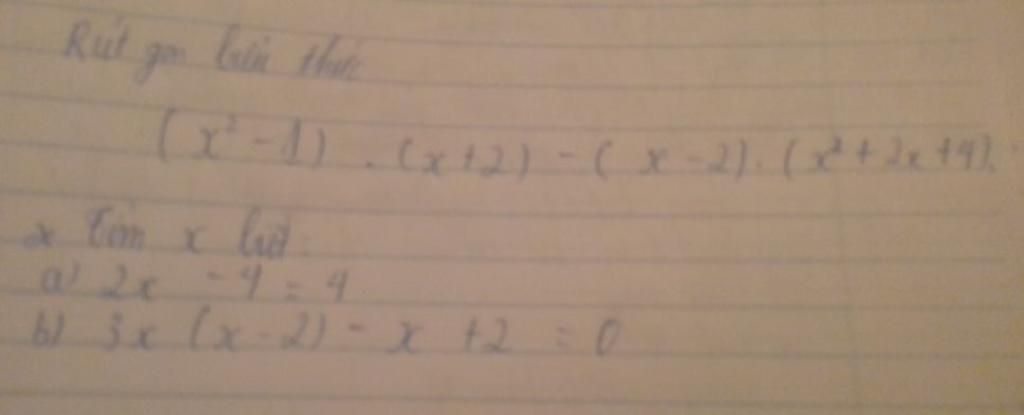 Rút gọn biểu thức
(x² - 1) . (x + 2) - ( x - 2) . (x² + 2x + 4).
* Tìm x biết.
a) 2x - 4 = 4
b) 3x (x - 2) - x + 2 = 0